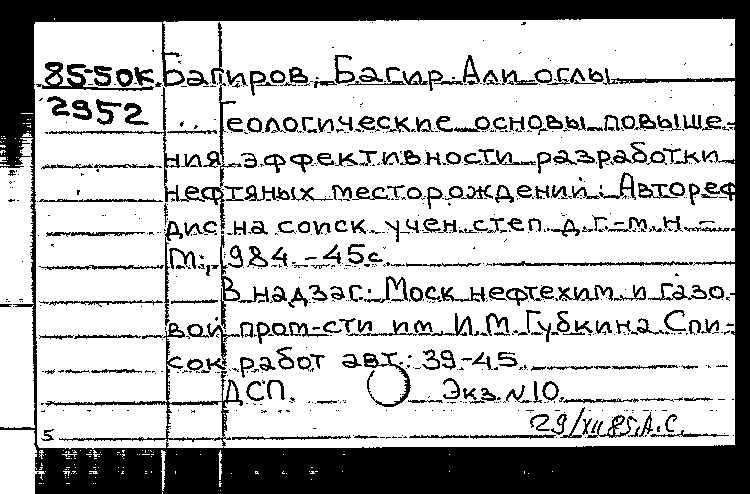 85-5ок Багиров, Багир Али оглы
2952 Геологические основы повыше-
ния эффективности разработки
нефтяных месторождений: Автореф
дис на соиск. учен. степ. д.г.-м.н. –
М:, 1984. – 45с.
В надзаг: Моск нефтехим. и газо-
вой пром-сти им. И.М. Губкина Спи-
сок работ авт.: 39-45.
ДСП. Экз. №10.
29/XII 85. А.С.
5